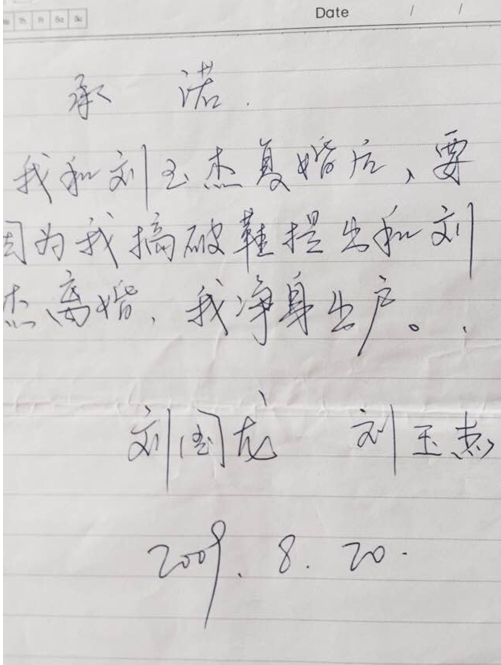 Date / /
承 诺.
我和刘玉杰复婚后、要
因为我搞破鞋提出和刘
杰离婚.我净身出户。.
刘国龙 刘玉杰
2009.8.20.